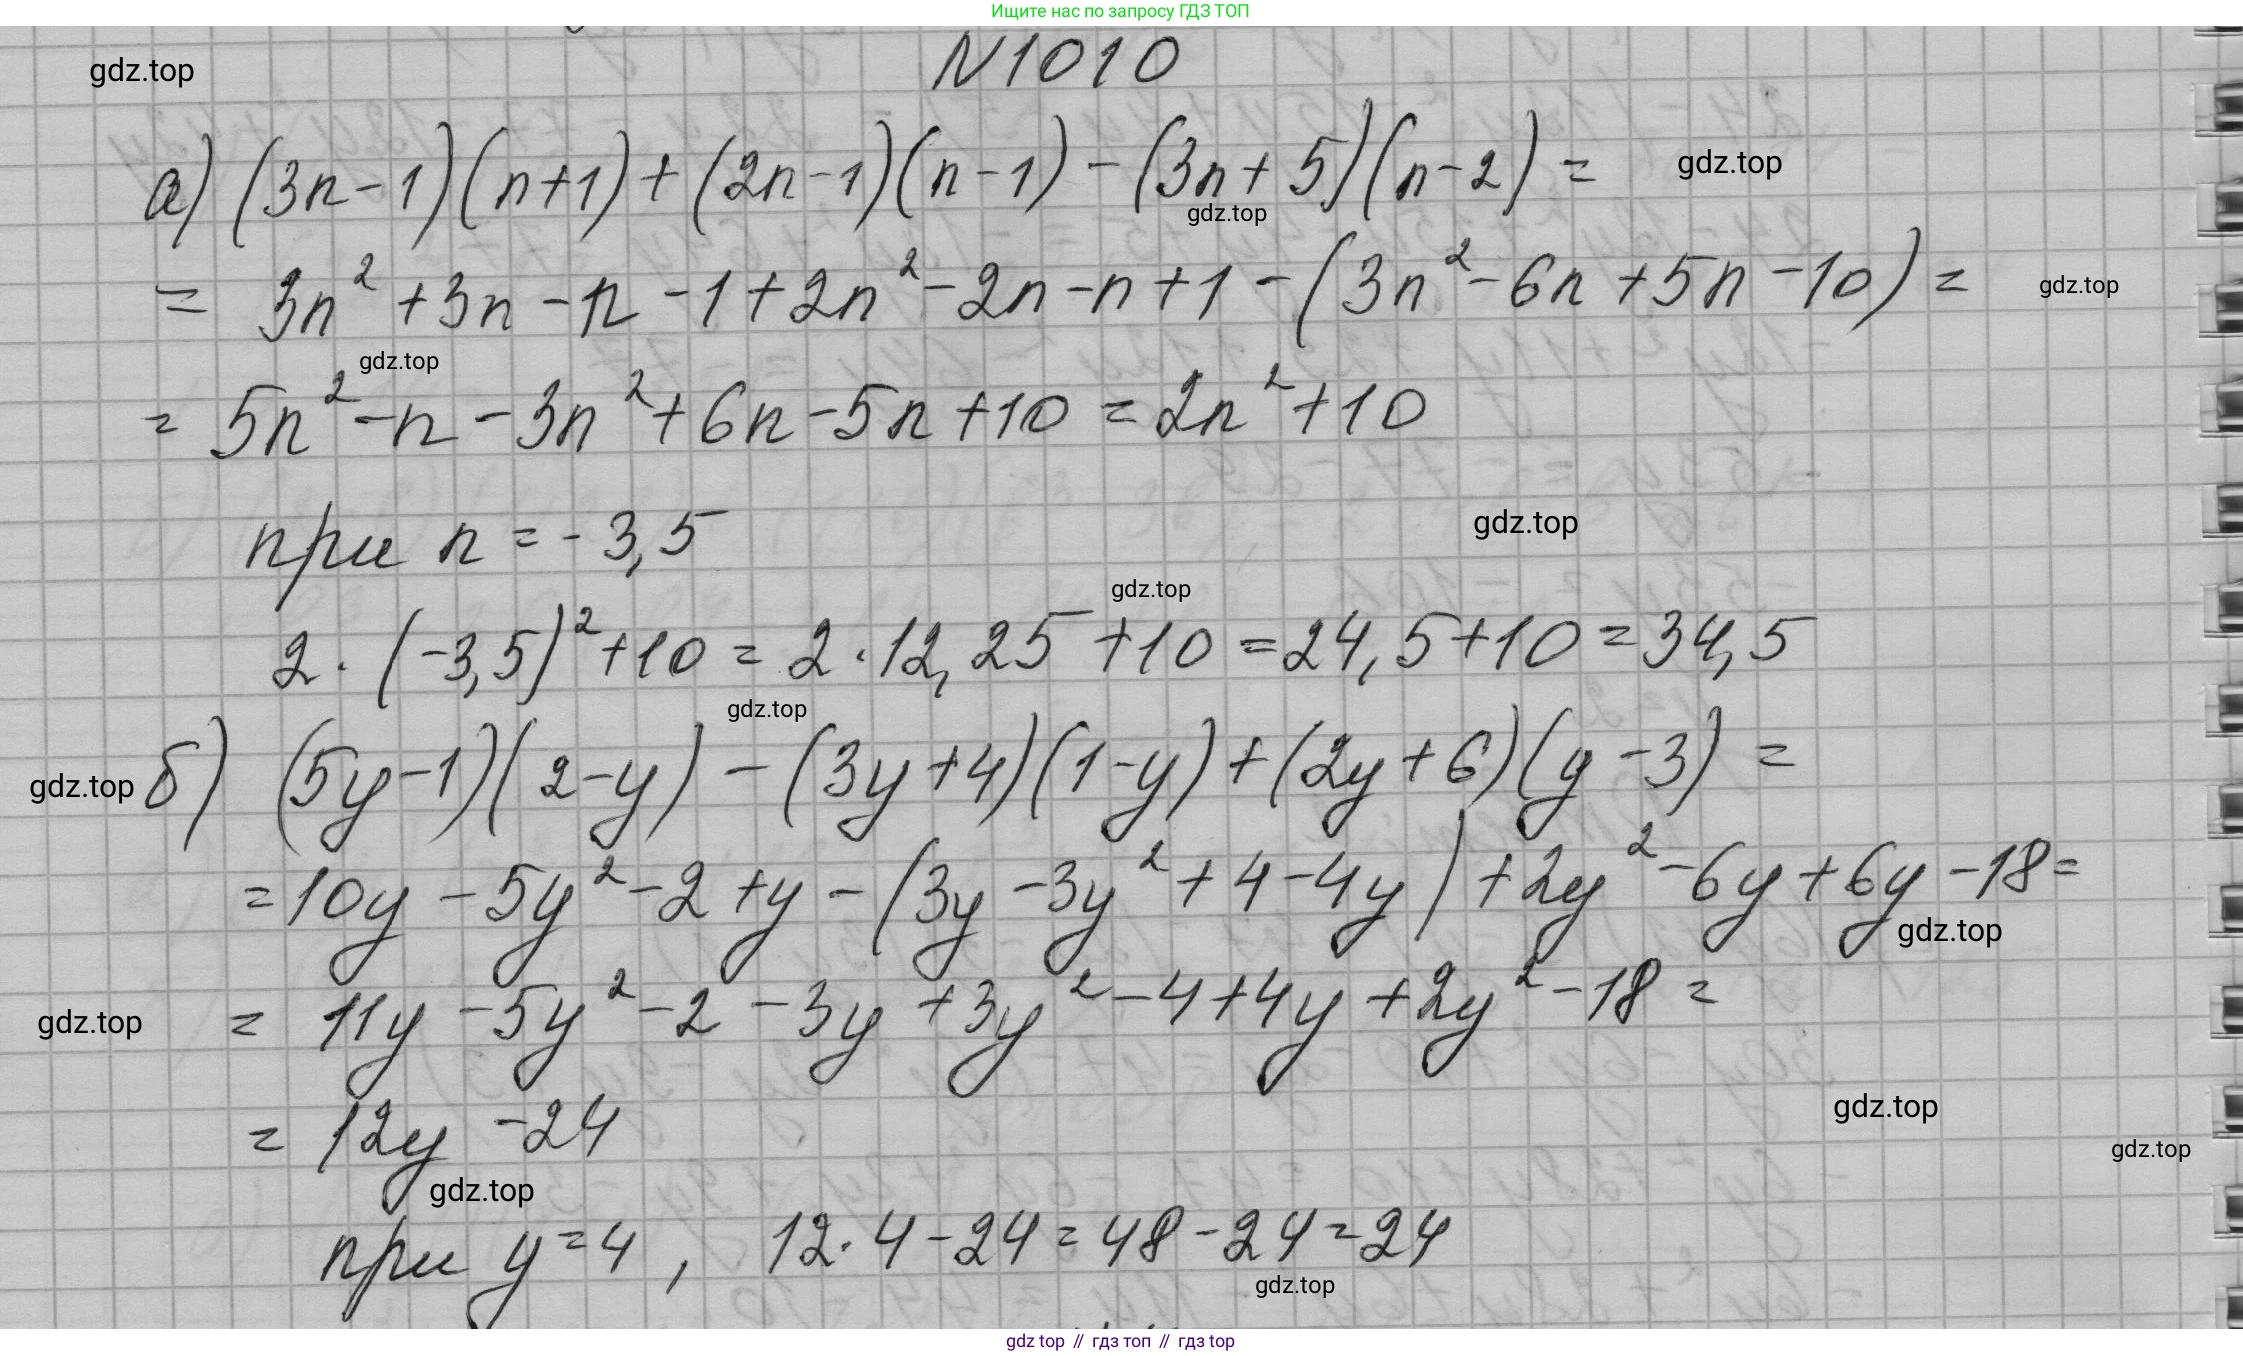 Ищите нас по запросу ГДЗ ТОП
N1010
gdz.top
а) (3n-1)(n+1)+(2n-1)(n-1)-(3n+5)(n-2)=
gdz.top
gdz.top
= 3n²+3n-n-1+2n²-2n-n+1-(3n²-6n+5n-10)=
gdz.top
gdz.top
= 5n²-n-3n²+6n-5n+10=2n²+10
при n=-3,5
gdz.top
gdz.top
2·(-3,5)²+10=2·12,25+10=24,5+10=34,5
gdz.top
gdz.top
б) (5y-1)(2-y)-(3y+4)(1-y)+(2y+6)(y-3)=
=10y-5y²-2+y-(3y-3y²+4-4y)+2y²-6y+6y-18=
gdz.top
gdz.top
= 11y-5y²-2-3y+3y²-4+4y+2y²-18=
gdz.top
= 12y-24
gdz.top
gdz.top
при y=4, 12·4-24=48-24=24
gdz.top
gdz top // гдз топ // гдз top